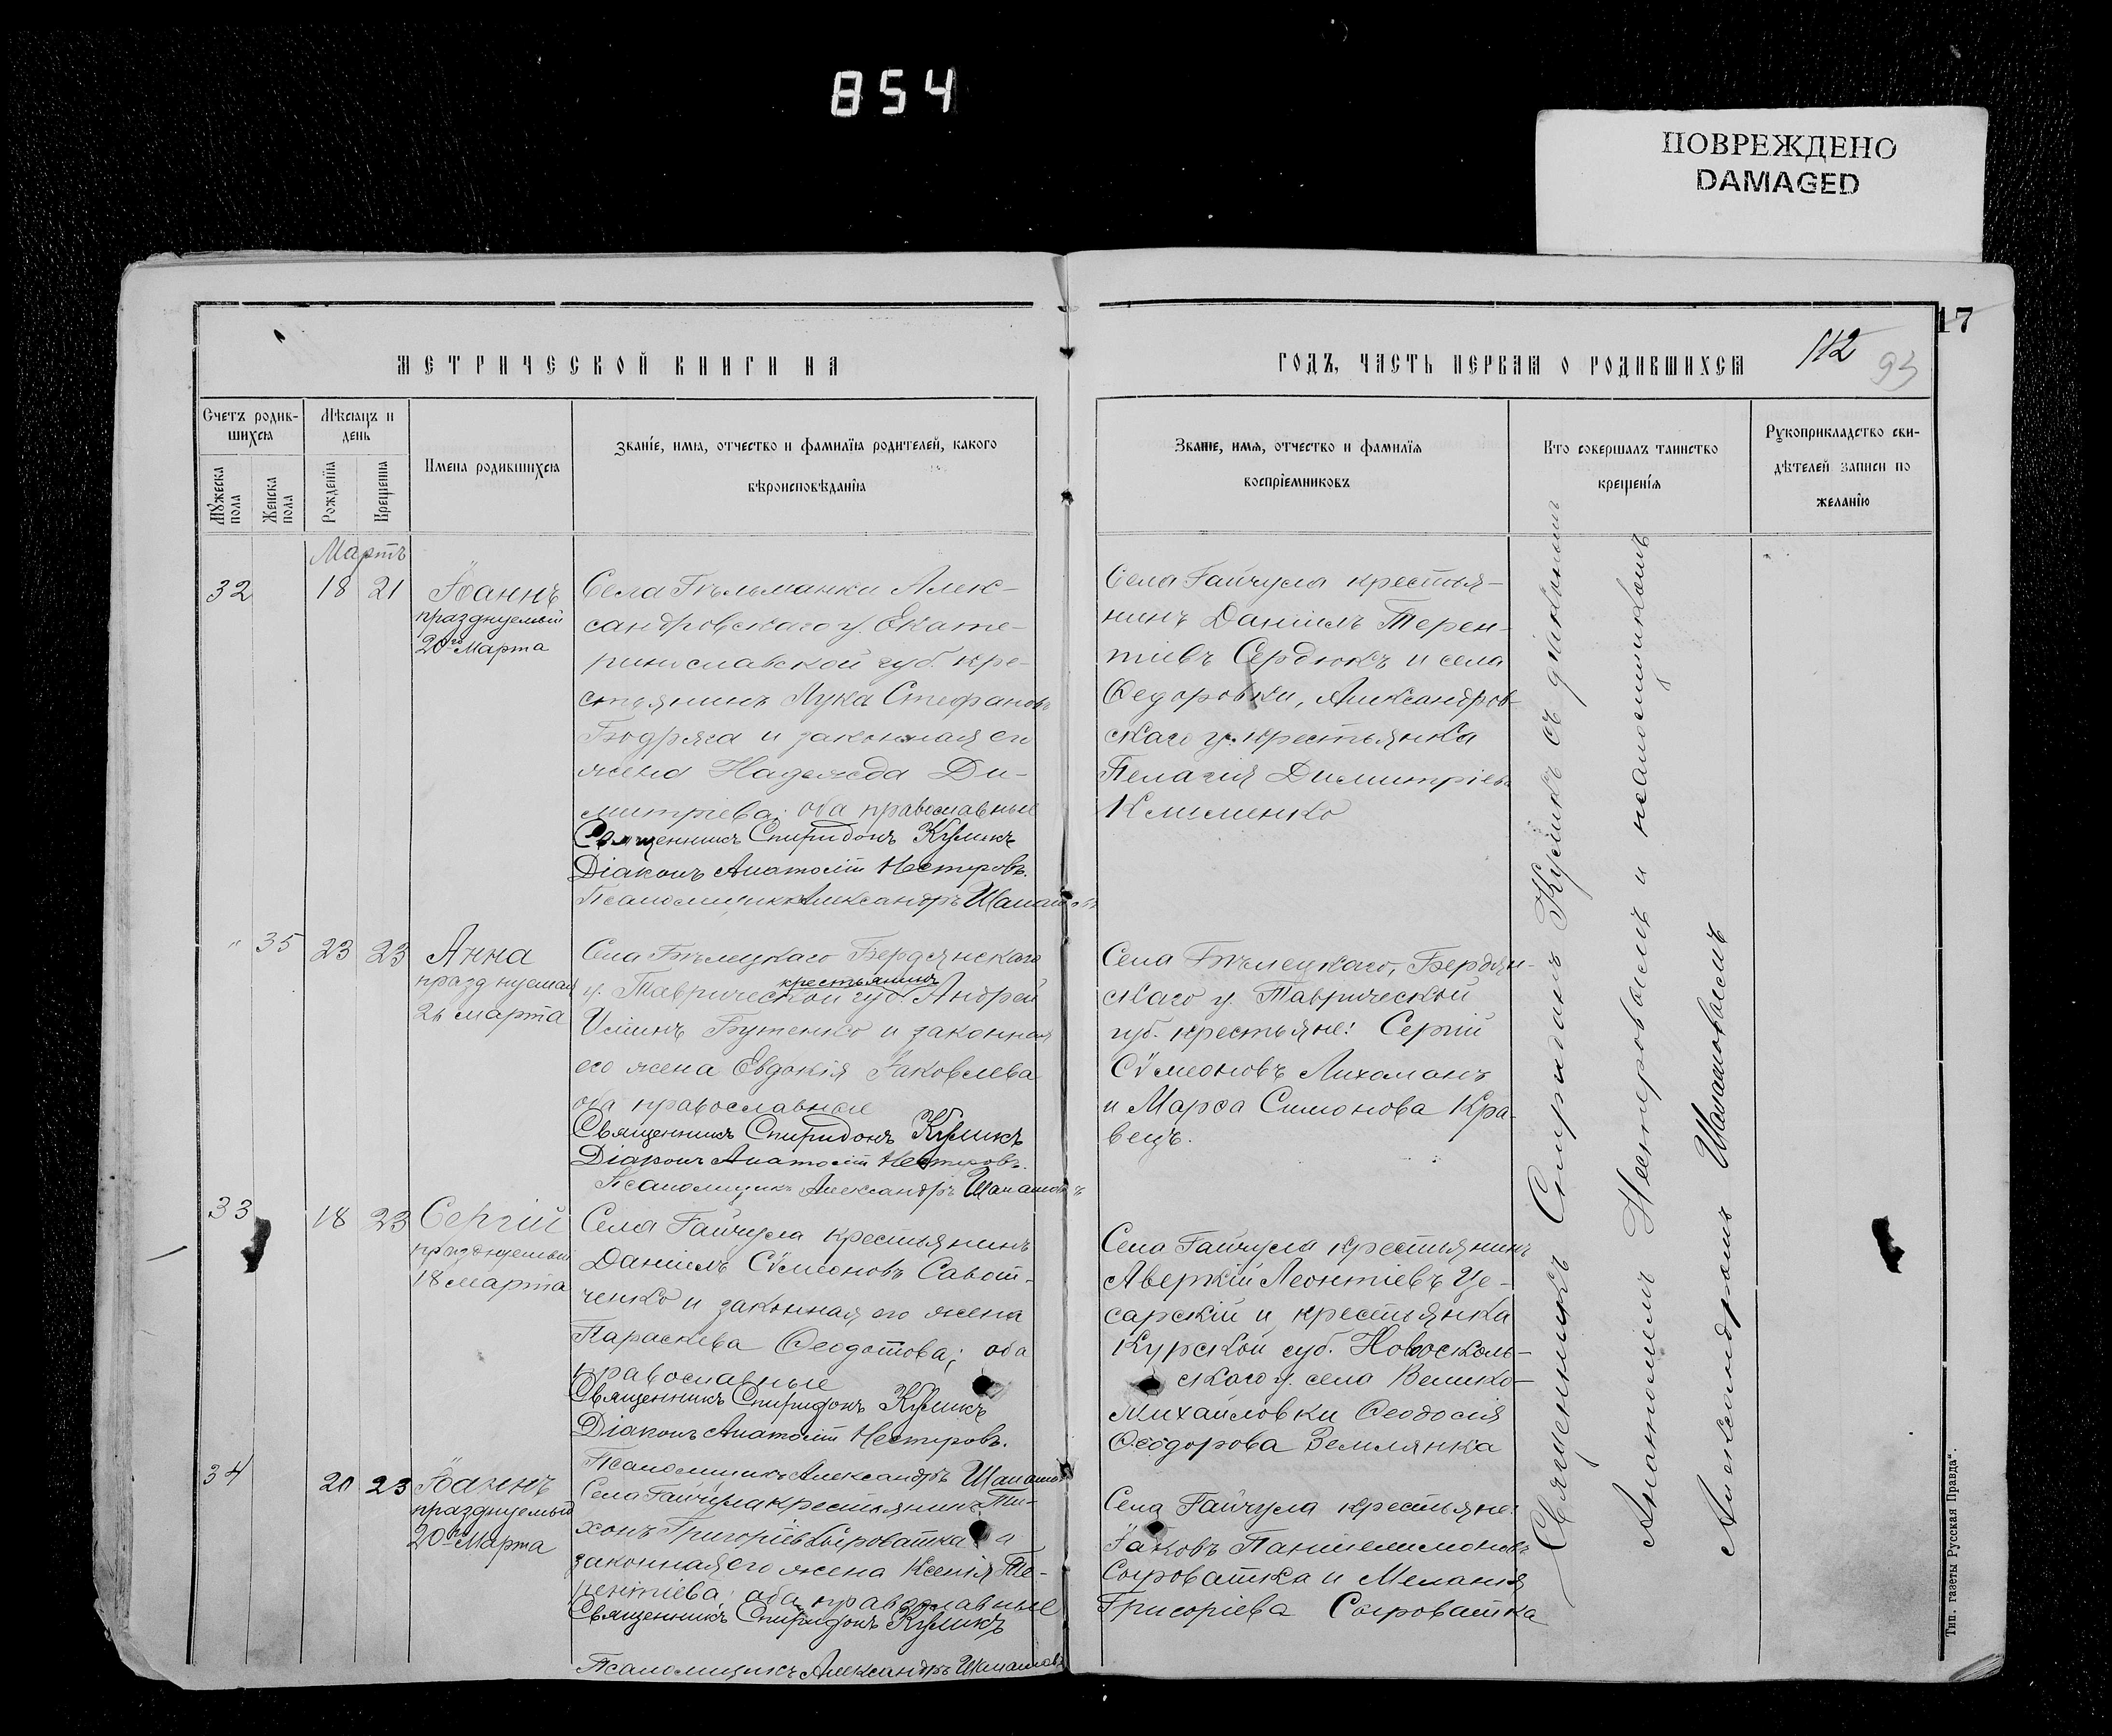 854
ПОВРЕЖДЕНО
DAMAGED
17
МЕТРИЧЕСКОЙ КНИГИ НА
ГОДЪ, ЧАСТЬ ПЕРВАЯ О РОДИВШИХСЯ
112
93
Счетъ родив-
шихся
Мѣсяцъ и
день
Мужеска пола
Женска пола
Рожденїя
Крещенїя
Имена родившихся
Званїе, имя, отчество и фамилїя родителей, какого
вѣроисповѣданїя
Званїе, имя, отчество и фамилїя
воспрїемниковъ
Кто совершалъ таинство
крещенїя
Рукоприкладство сви-
дѣтелей записи по
желанїю
Мартъ
32
18 21
Іоаннъ
празднуемый
20го Марта
Села Гѣльманки Алек-
сандровскаго у. Екате-
ринославской губ. кре-
стьянинъ Лука Стефановъ
Бодряга и законная его
жена Надежда Ди-
митріева; оба православные
Священникъ Спиридонъ Куликъ
Діаконъ Анатолій Нестеровъ.
Псаломщикъ Александръ
Села Гайчула крестья-
нинъ Даніилъ Терен-
тіевъ Сердюкъ и села
Ѳедоровки, Александров-
скаго у. крестьянка
Пелагія Димитріева
Клименко
" 35
23 23
Анна
празднуемая
26 марта
Села Бѣлецкаго Бердянскаго
крестьянинъ
у. Таврической губ. Андрей
Иліинъ Бутенко и законная
его жена Евдокія Іаковлева
оба православные
Священникъ Спиридонъ Куликъ
Діаконъ Анатолій Нестеровъ.
Псаломщикъ Александръ
Села Бѣлецкаго, Бердян-
скаго у. Таврической
губ. крестьяне: Сергій
Сѵмеоновъ Лихоманъ
и Марѳа Симонова Кра-
вецъ.
33
18 23
Сергій
празднуемый
18 марта
Села Гайчула крестьянинъ
Даніилъ Сѵмеоновъ Савот-
ченко и законная его жена
Параскева Ѳеодотова; оба
православные
Священникъ Спиридонъ Куликъ
Діаконъ Анатолій Нестеровъ.
Псаломщикъ Александръ
Села Гайчула крестьянинъ
Аверкій Леонтіевъ Це-
сарскій и крестьянка
Курской губ. Новосколь-
скаго у. села Велико-
Михайловки Ѳеодосія
Ѳеодорова Землянка
34
20 23
Іоаннъ
празднуемый
20го Марта
Села Гайчула крестьянинъ Ти-
хонъ Григоріевъ Сыроватка и
законная его жена Ксенія Те-
рентіева; оба православные
Священникъ Спиридонъ Куликъ
Псаломщикъ Александръ
Села Гайчула крестьяне:
Іаковъ Пантелеимоновъ
Сыроватка и Меланія
Григоріева Сыроватка
Священникъ Спиридонъ Куликъ съ діакономъ
Анатоліемъ Нестеровымъ и псаломщикомъ
Александромъ
Тип. газеты Русская Правда".